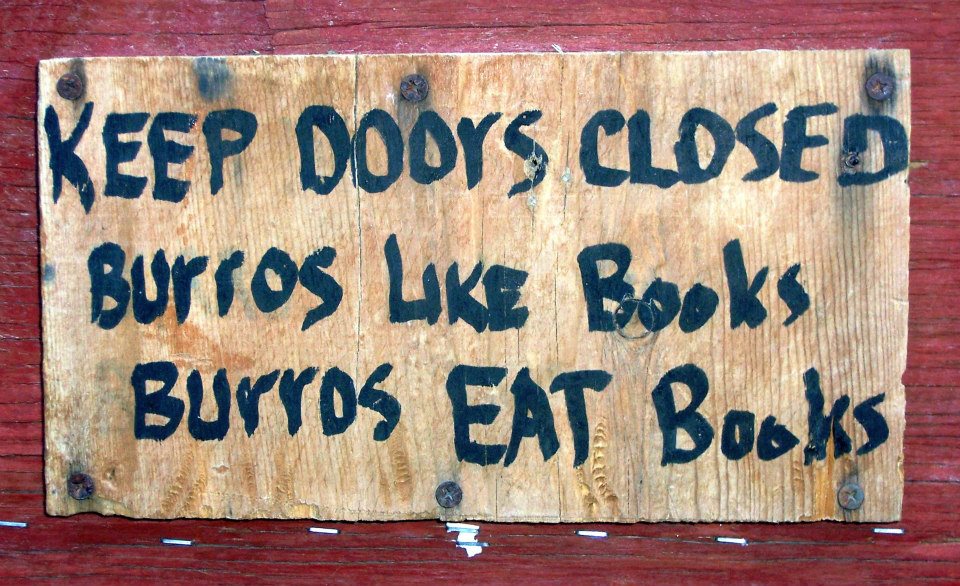 KEEP DOOrS CLOSED
Burros LIKE Books
Burros EAT Books